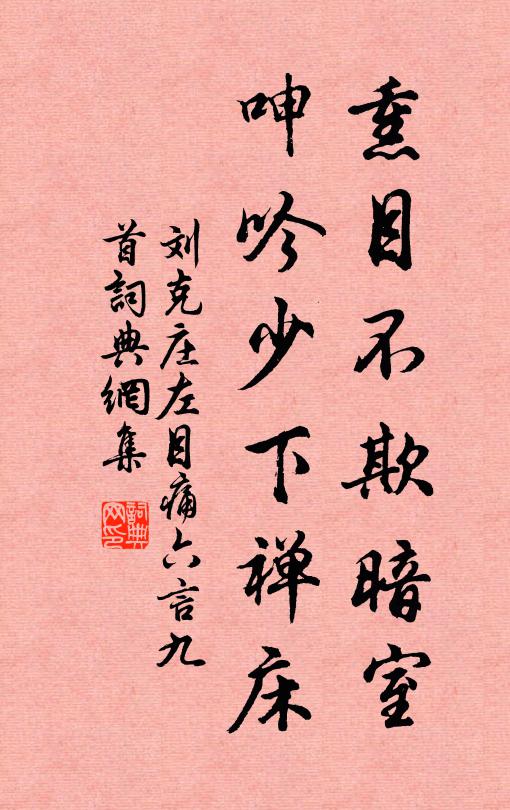 熏目不欺暗室
呻吟少下禅床
刘克庄左目痛六言九
首詞典網集
詞典
网印